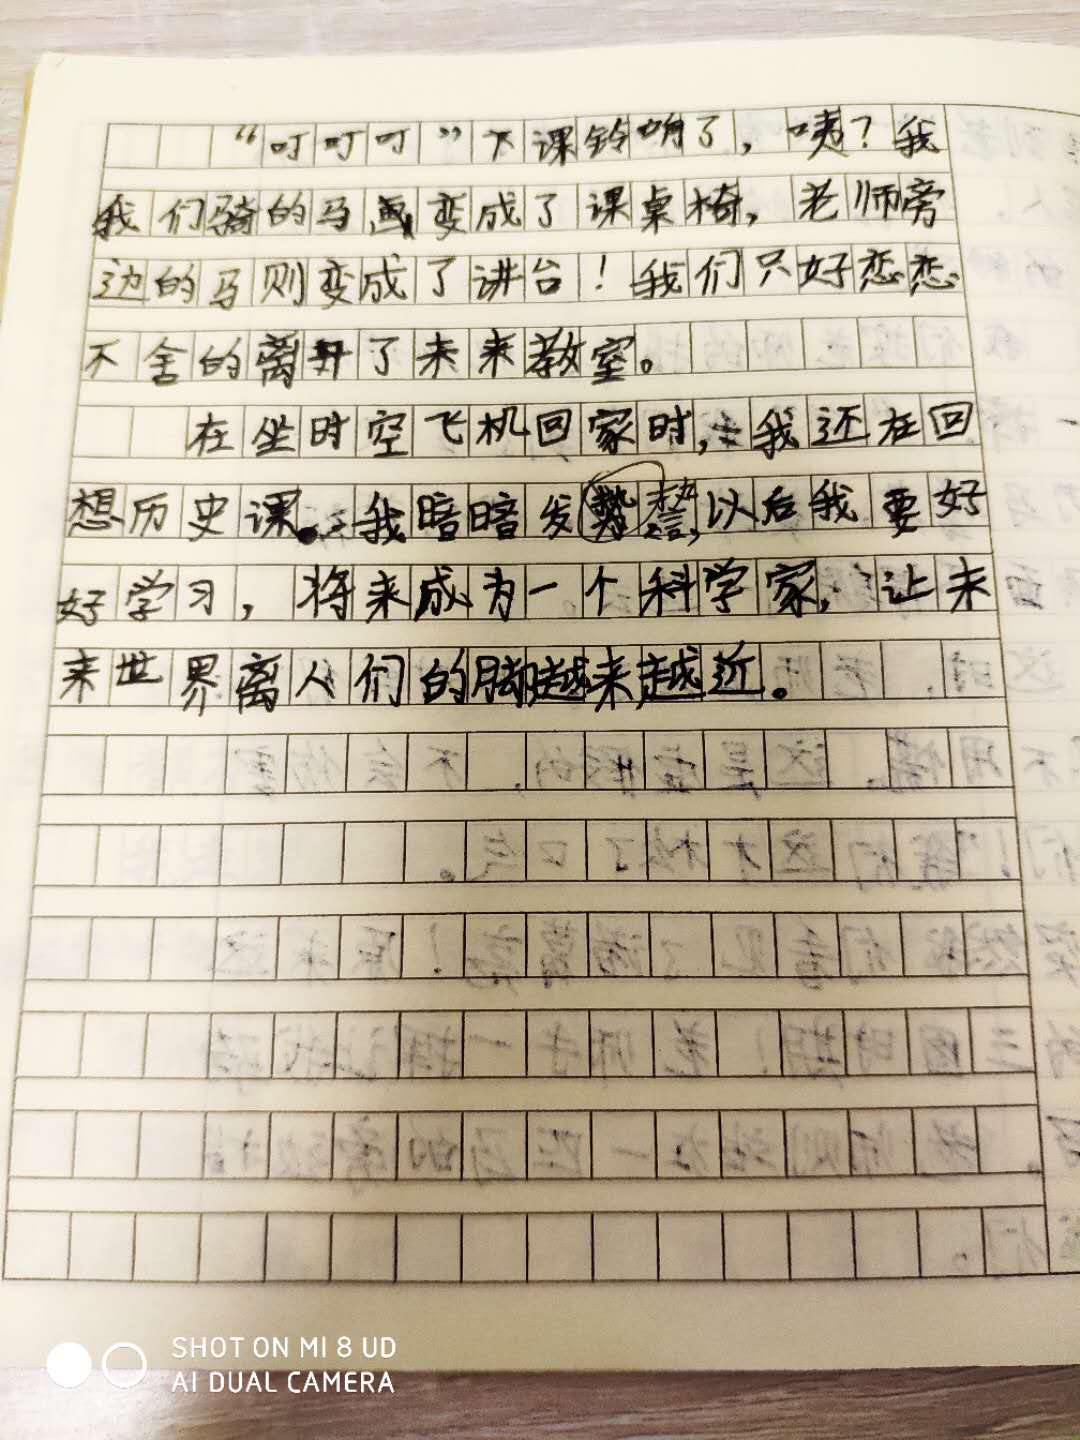 “叮叮叮”下课铃响了，咦？我
我们骑的马画变成了课桌椅，老师旁
边的马则变成了讲台！我们只好恋恋
不舍的离开了未来教室。
在坐时空飞机回家时，我还在回
想历史课。我暗暗发誓，以后我要好
好学习，将来成为一个科学家，让未
来世界离人们的脚越来越近。
SHOT ON MI 8 UD
AI DUAL CAMERA